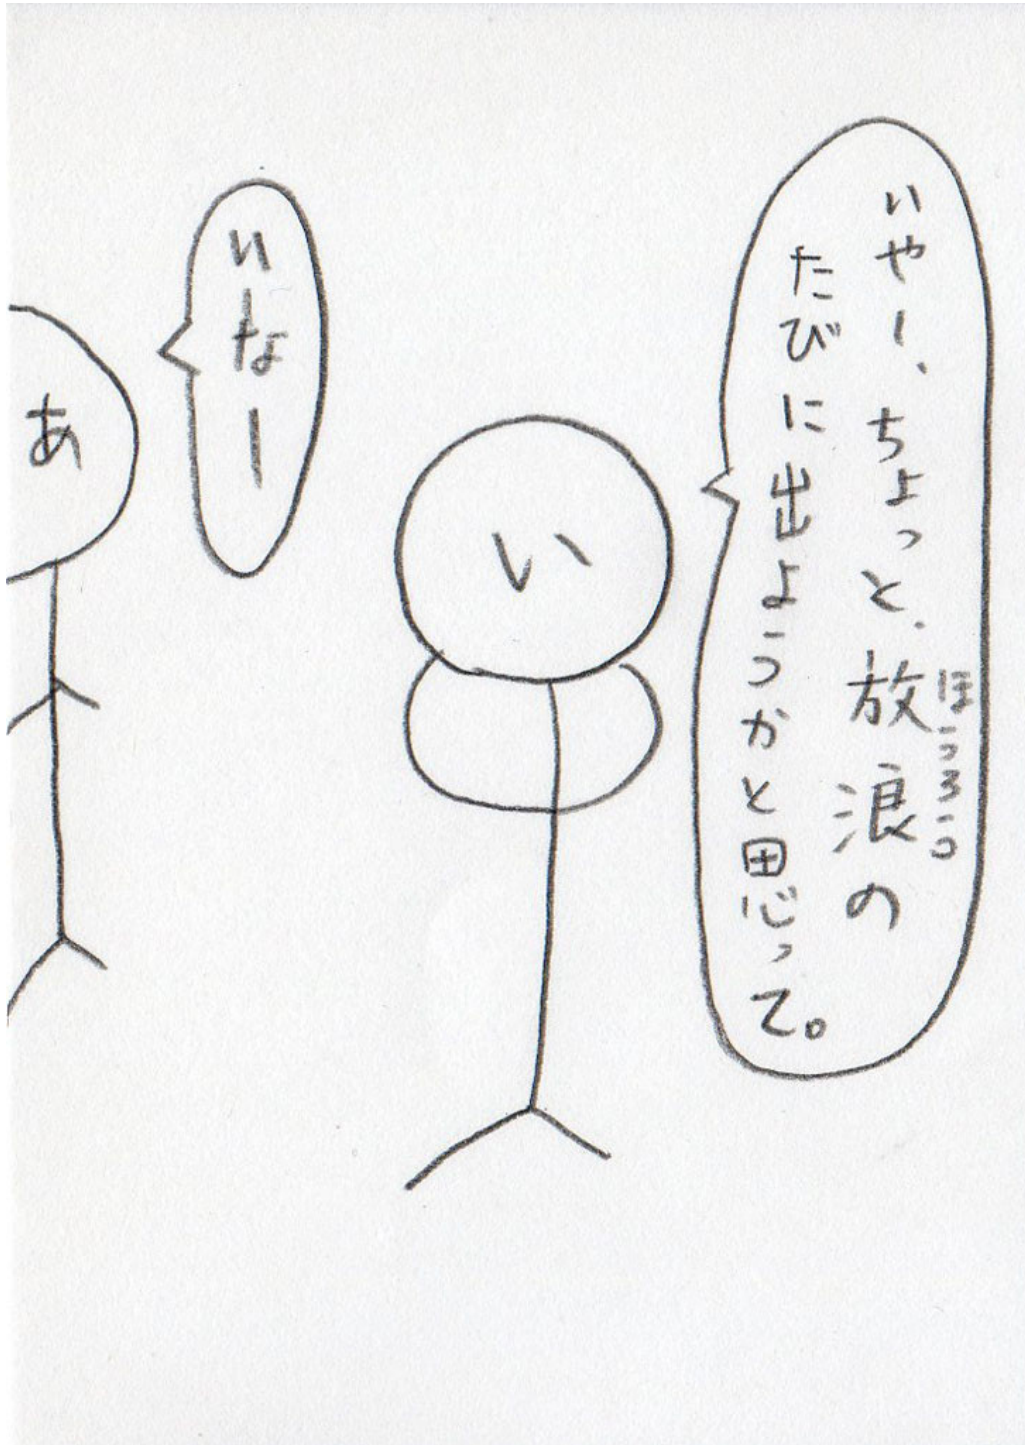 いやー、ちょっと、放浪の
ほうろう
たびに出ようかと思って。
い
いなー
あ